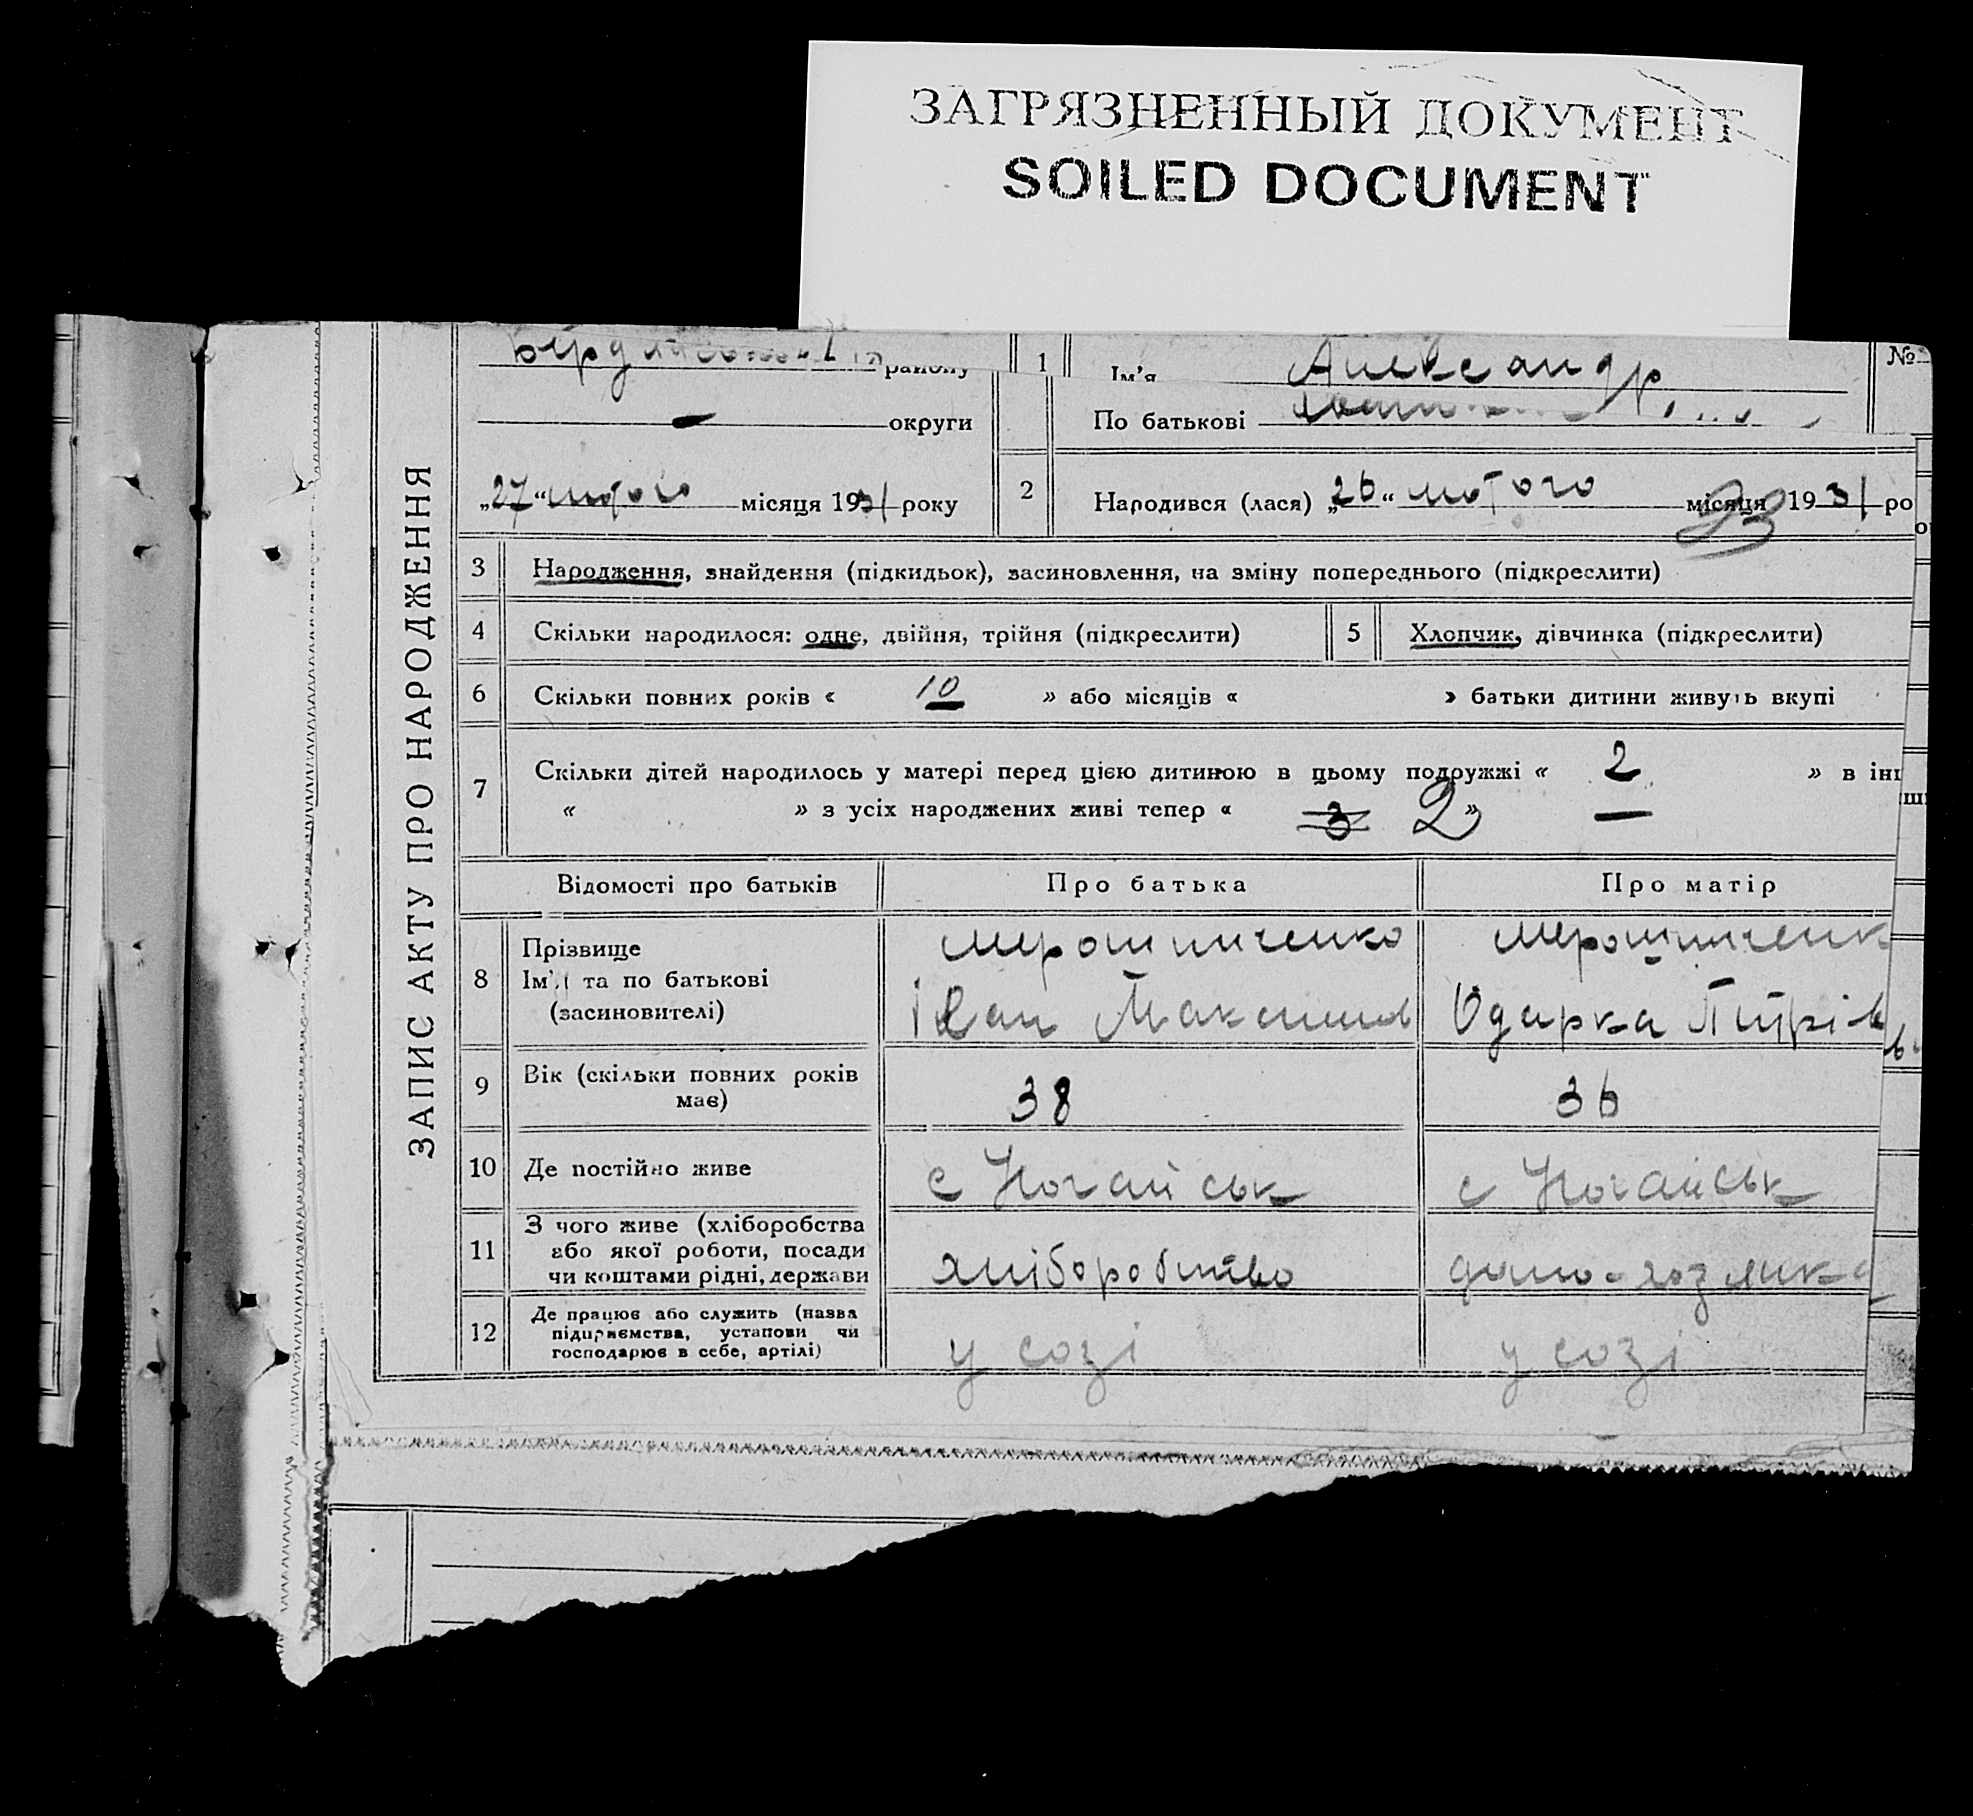 ЗАГРЯЗНЕННЫЙ ДОКУМЕНТ
SOILED DOCUMENT
ЗАПИС АКТУ ПРО НАРОДЖЕННЯ
району
округи
„27“ лютого місяця 1931 року
1 Ім'я Александр
№
По батькові
2 Народився (лася) „26“ лютого місяця 1931 ро
93
3 Народження, знайдення (підкидьок), засиновлення, на зміну попереднього (підкреслити)
4 Скільки народилося: одне, двійня, трійня (підкреслити)
5 Хлопчик, дівчинка (підкреслити)
6 Скільки повних років « 10 » або місяців « » батьки дитини живуть вкупі
7 Скільки дітей народилось у матері перед цією дитиною в цьому подружжі « 2 » в інш
« » з усіх народжених живі тепер « 3 2 » —
Відомості про батьків Про батька Про матір
8 Прізвище
Ім'я та по батькові
(засиновителі)
Мірошниченко
Іван Максимов
Мірошниченк
Одарка Петрів
9 Вік (скільки повних років
має)
38
36
10 Де постійно живе
с Ногайськ
с Ногайськ
11 З чого живе (хліборобства
або якої роботи, посади
чи коштами рідні, держави
хліборобство
домо-хозяйка
12 Де працює або служить (назва
підприємства, установи чи
господарює в себе, артілі)
у созі
у созі